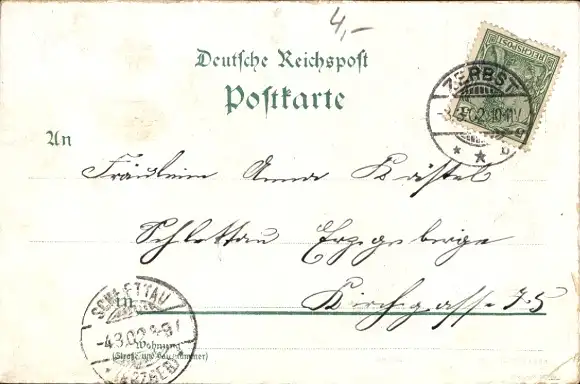 4,-
Deutsche Reichspost
Postkarte
REICHSPOST
ZERBST
-3.3.02.10-11V
* * b
An
Fräulein Anna Kästel
Schlettau Erzgebirge
in Kirchgasse 75
SCHLETTAU
-4.3.02.
(ERZGEB.)
Wohnung
(Straße und Hausnummer)